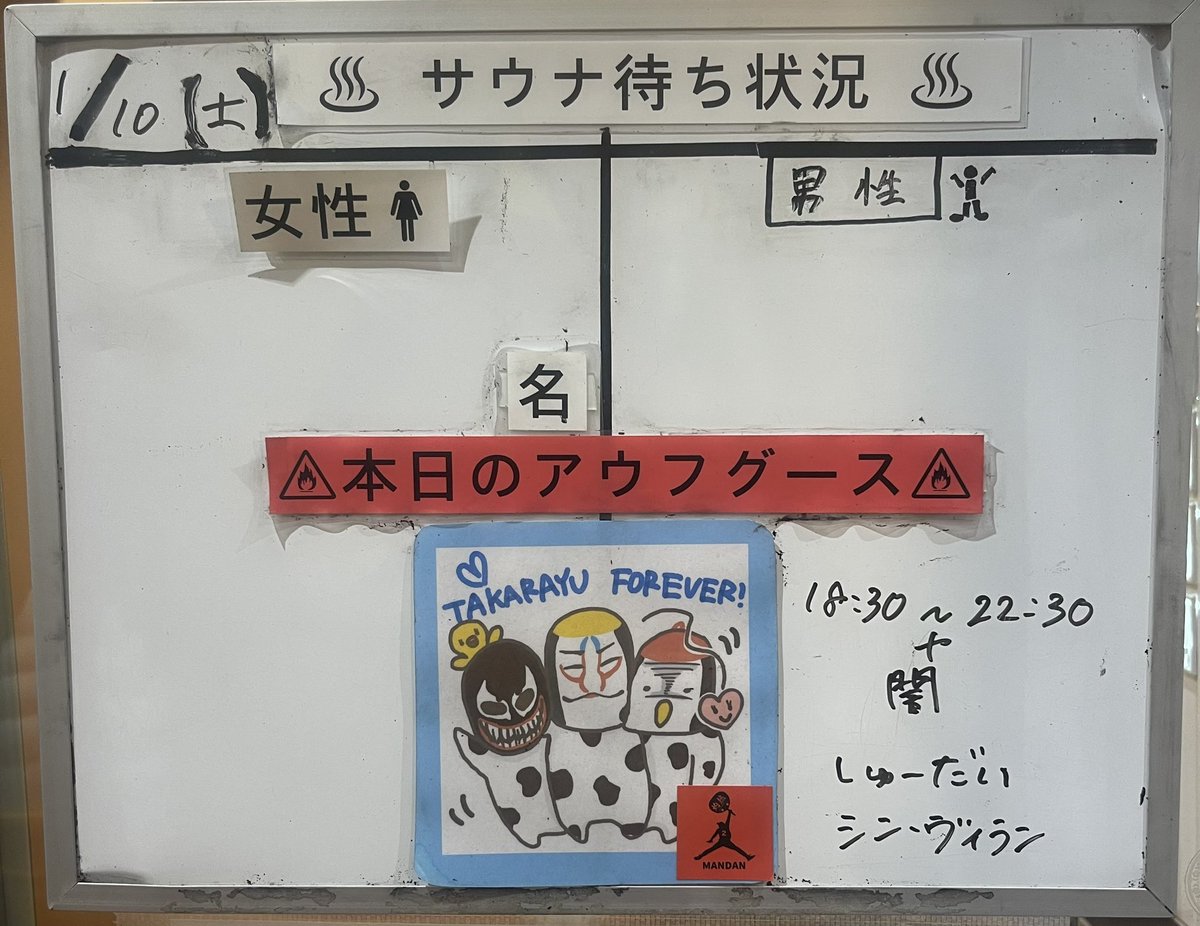 1/10(土)
サウナ待ち状況
女性
男性
名
本日のアウフグース
TAKARAYU FOREVER!
18:30～22:30
+
闇
しゅーだい
シン・ヴィラン
MANDAN